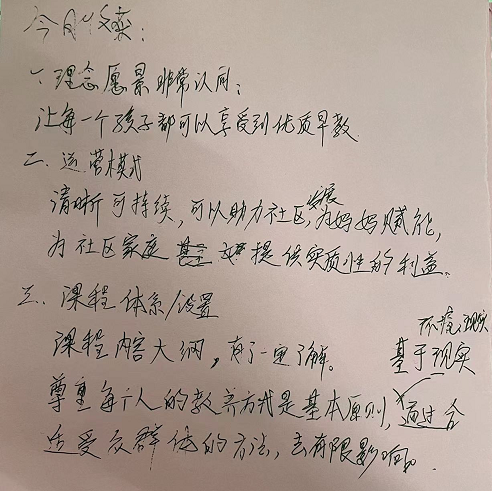 今日收获:
一、理念愿景非常认同:
让每一个孩子都可以享受到优质早教
二、运营模式
清晰可持续,可以助力社区发展,为妈妈赋能,
为社区家庭提供实质性的利益。
三、课程体系/设置
课程内容大纲,有了一定了解。
不接现实
基于现实
尊重每个人的教养方式是基本原则,通过合
适受众群体的方法,去有限影响。